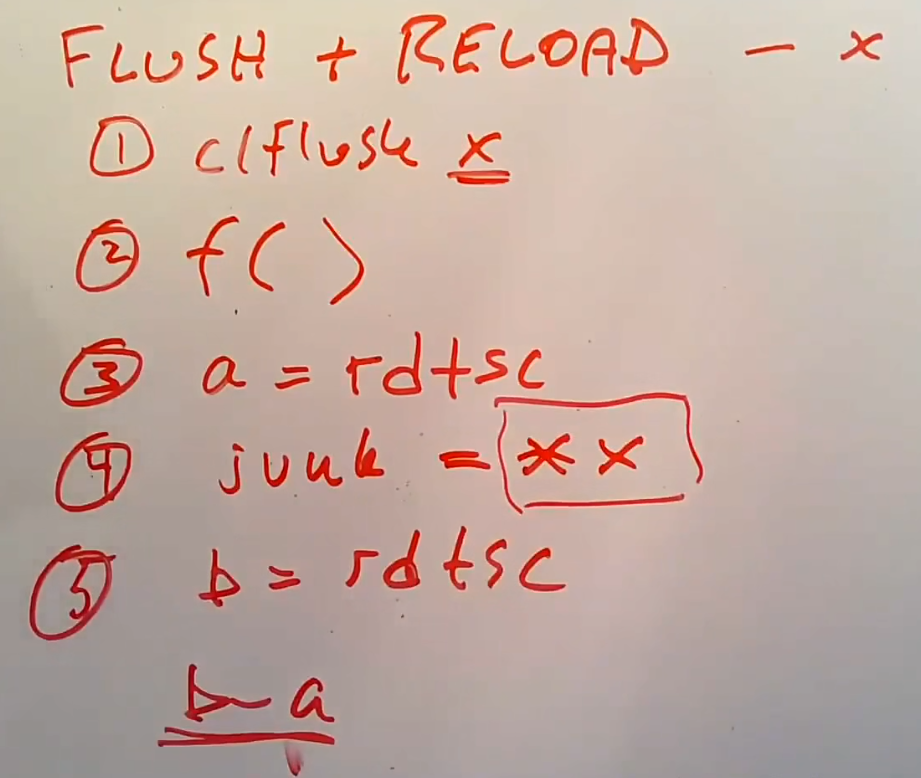 FLUSH + RELOAD - x
① clflush x
② f()
③ a = rdtsc
④ junk = *x
⑤ b = rdtsc
b-a